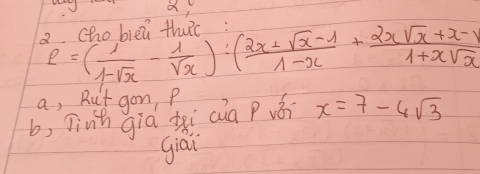 2. Cho biểu thức :
P = (1/(1-√x) - 1/√x) : ((2x + √x - 1)/(1-x) + (2x√x + x - √)/(1+x√x)
a, Rút gọn P
b, Tính giá trị của P với x = 7 - 4√3
Giải